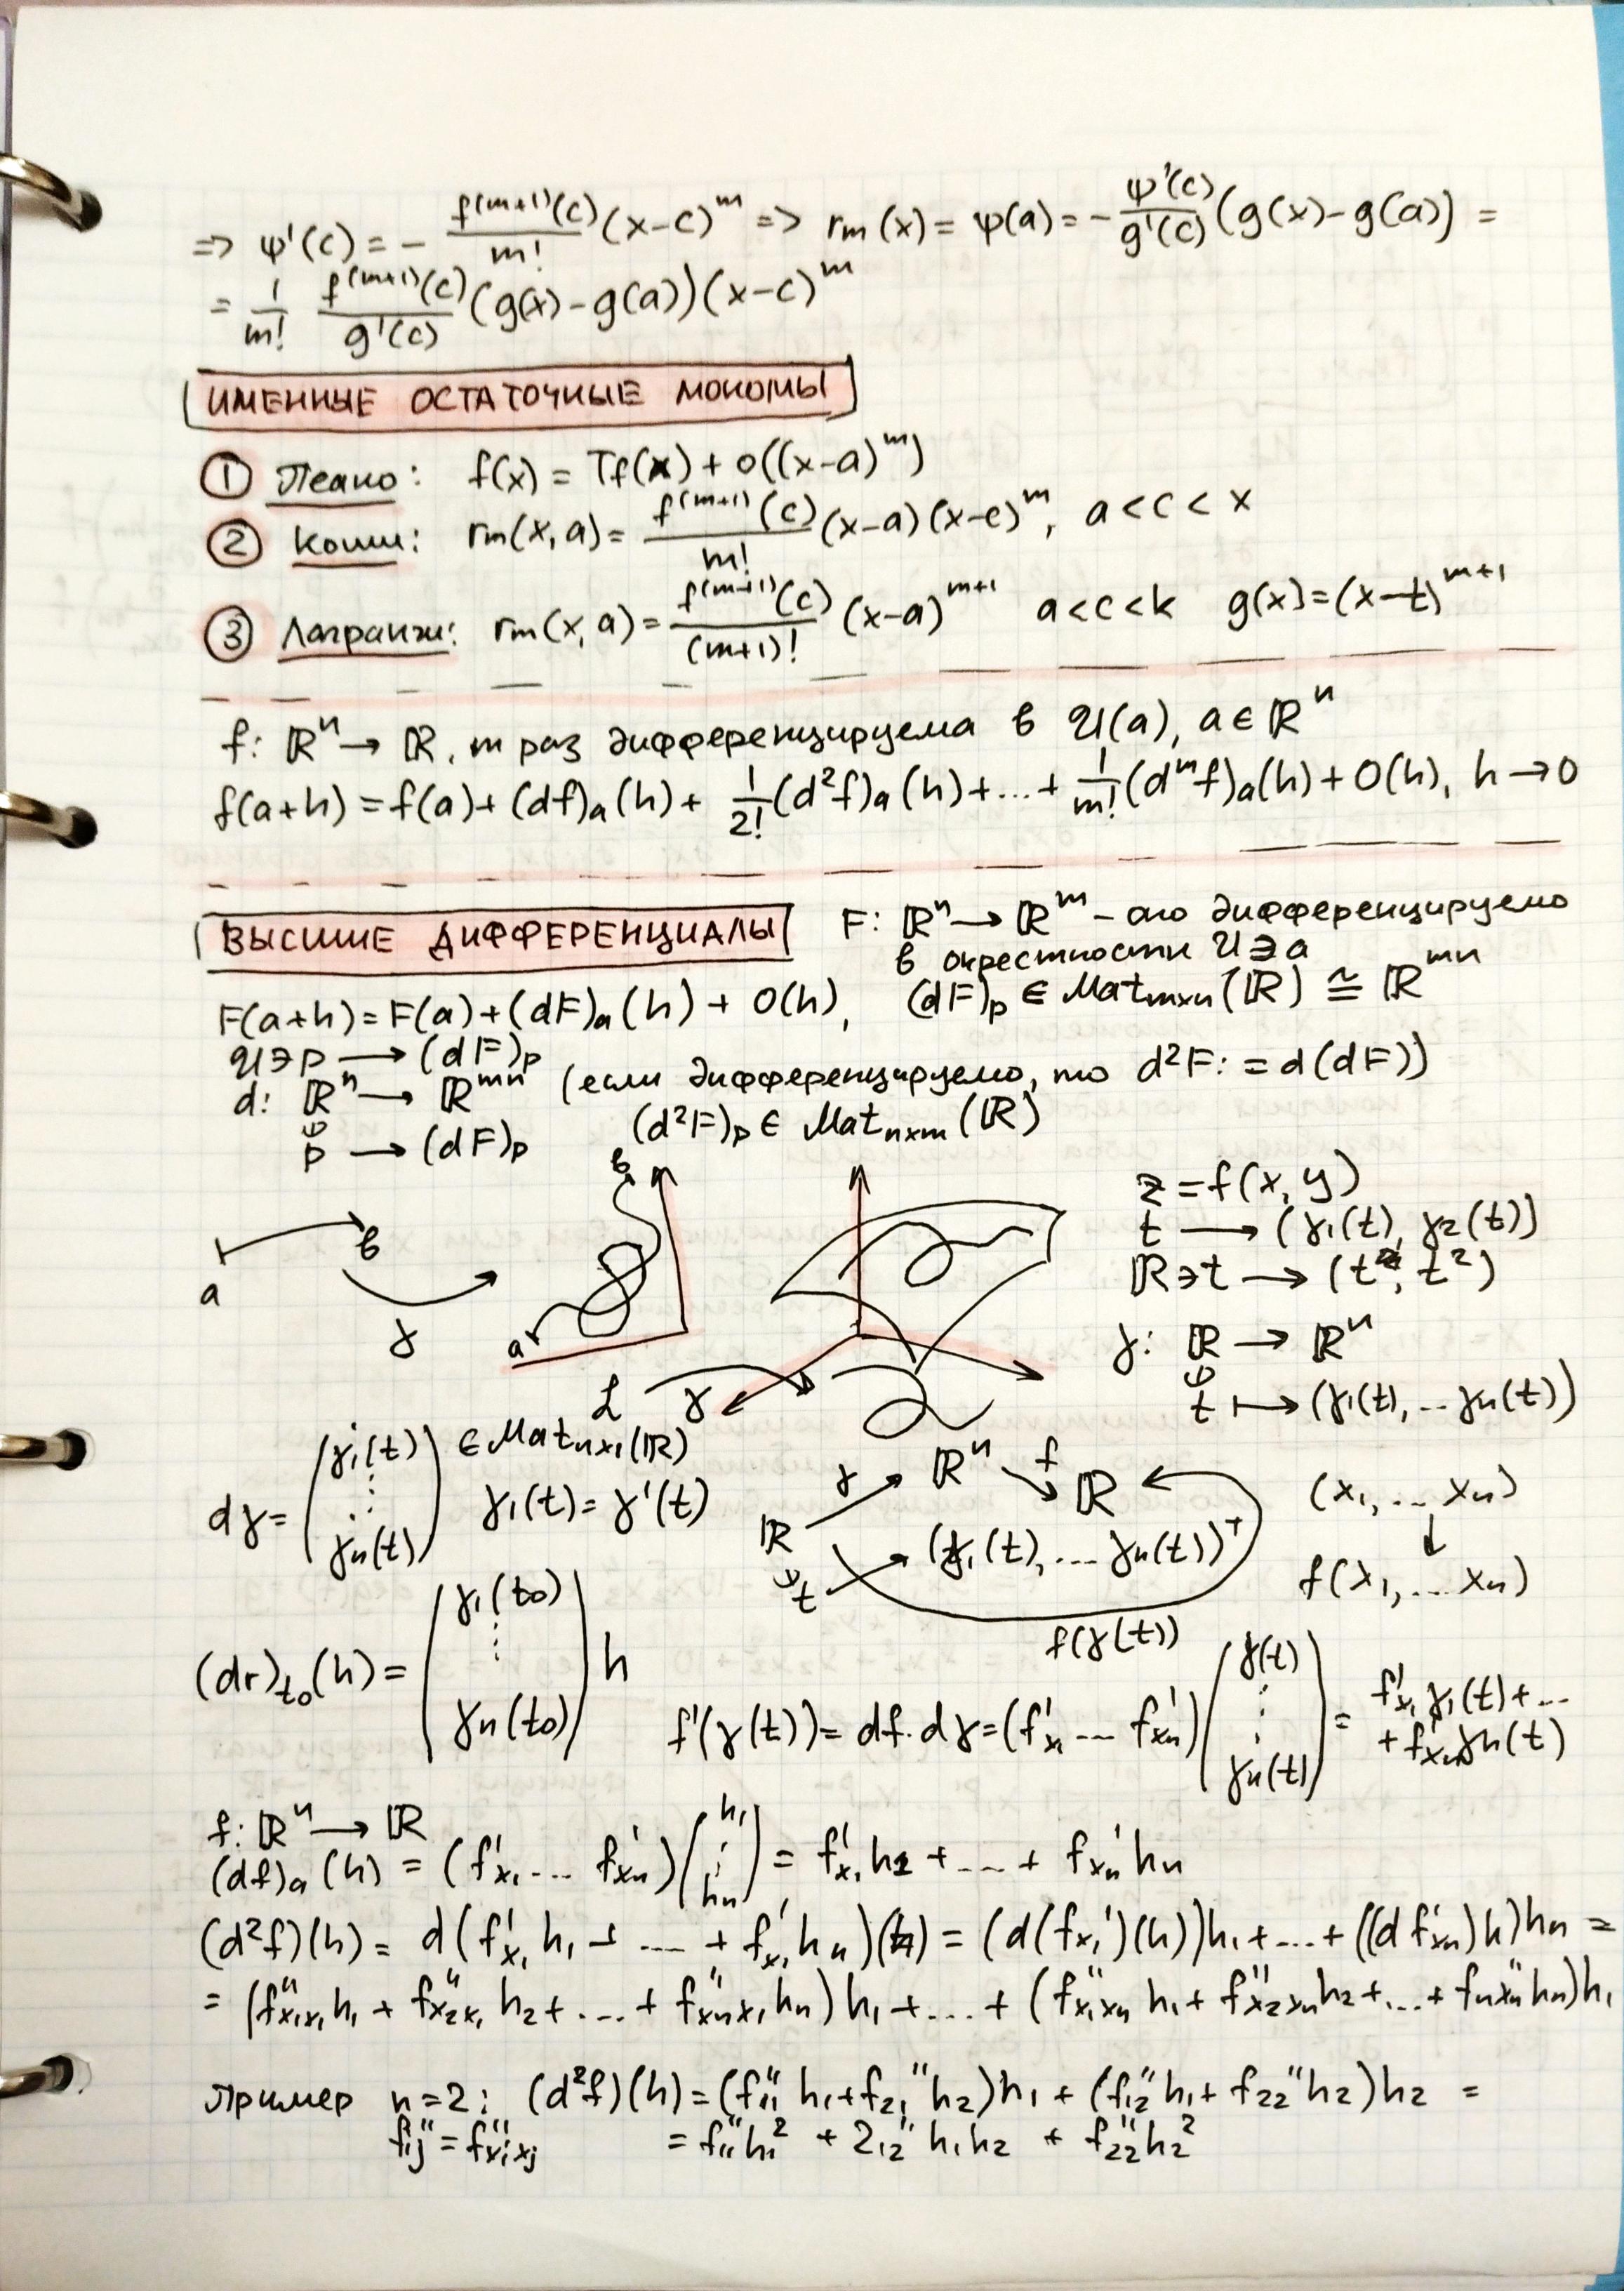 => ψ'(c) = - f^(m+1)(c)/m! (x-c)^m => rm(x) = ψ(a) = - ψ'(c)/g'(c) (g(x)-g(a)) =
= 1/m! f^(m+1)(c)/g'(c) (g(x)-g(a))(x-c)^m
ИМЕННЫЕ ОСТАТОЧНЫЕ МОНОМЫ
① Пеано: f(x) = Tf(x) + o((x-a)^m)
② Коши: rm(x,a) = f^(m+1)(c)/m! (x-a)(x-c)^m, a<c<x
③ Лагранж: rm(x,a) = f^(m+1)(c)/(m+1)! (x-a)^m+1 a<c<k g(x)=(x-t)^m+1
f: ℝ^n → ℝ, m раз дифференцируема в U(a), a∈ℝ^n
f(a+h) = f(a) + (df)a(h) + 1/2! (d²f)a(h) + ... + 1/m! (d^m f)a(h) + O(h), h→0
ВЫСШИЕ ДИФФЕРЕНЦИАЛЫ
F: ℝ^n → ℝ^m - ото дифференцируемо
в окрестности U∋a
F(a+h) = F(a) + (dF)a(h) + O(h), (dF)p ∈ Mat mxn(ℝ) ≅ ℝ^mn
U∋p → (dF)p
d: ℝ^n → ℝ^mn (если дифференцируемо, то d²F: = d(dF))
p → (dF)p (d²F)p ∈ Mat nxm(ℝ)
a b γ
a b
L γ
z = f(x,y)
t → (γ1(t), γ2(t))
ℝ∋t → (t², t²)
γ: ℝ → ℝ^n
t ↦ (γ1(t), ... γn(t))
dγ = (γ1(t) ⋮ γn(t)) ∈ Mat nx1(ℝ)
γ1(t) = γ'(t)
ℝ γ ℝ^n f ℝ
t → (γ1(t), ... γn(t))^T
f(γ(t))
(x1, ... xn)
↓
f(x1, ... xn)
(dr)t0(h) = (γ1(t0) ⋮ γn(t0)) h
f'(γ(t)) = df·dγ = (f'x1 ... f'xn)(γ(t) ⋮ γn(t)) = f'x1 γ1(t) + ... + f'xn γn(t)
f: ℝ^n → ℝ
(df)a(h) = (f'x1 ... f'xn)(h1 ⋮ hn) = f'x1 h1 + ... + f'xn hn
(d²f)(h) = d(f'x1 h1 + ... + f'x1 hn)(h) = (d(fx1')(h))h1 + ... + ((df'xn)h)hn =
= (f''x1x1 h1 + f''x2x1 h2 + ... + f''xnx1 hn)h1 + ... + (f''x1xn h1 + f''x2xn h2 + ... + f''nxn hn)h1
Пример n=2: (d²f)(h) = (f''11 h1 + f''21 h2)h1 + (f''12 h1 + f''22 h2)h2 =
f''ij = f''xixj = f''11 h1² + 2''12 h1h2 + f''22 h2²